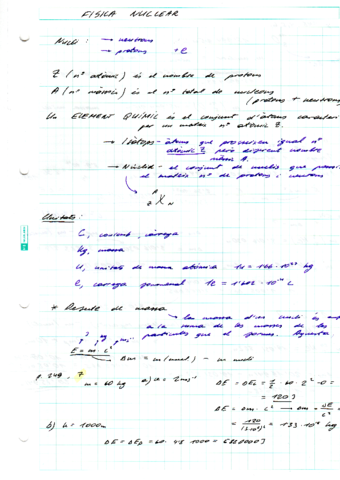 FISICA NUCLEAR
Nucli: → neutrons
→ protons + e
Z (nº atòmic) és el nombre de protons
A (nº màssic) és el nº total de nucleons
(protons + neutrons
Un ELEMENT QUÍMIC és el conjunt d'àtoms
per un mateix nº atòmic Z.
→ Isòtops - àtoms que presenten igual nº
atòmic Z però diferent nombre
màssic A.
→ Núclid - el conjunt de nuclis que
el mateix nº de protons i neutrons
A
Z X N
Unitats:
C, coulomb, càrrega
kg, massa
u, unitats de massa atòmica 1u = 1'66·10⁻²⁷ kg
e, càrrega
* Defecte de massa
→ La massa d'un nucli és
a la suma de les masses de les
partícules que el formen. Aquesta
J kg m/s
E = m·c²
p. 249 - 7
m = 60 kg a) v = 2 m/s
ΔE = ΔEc = 1/2 · 60 · 2² - 0 =
= 120 J
ΔE = Δm · c² → Δm = ΔE/c²
= 120/(3·10⁸)² = 1'33·10⁻¹⁵ kg
b) h = 1000m